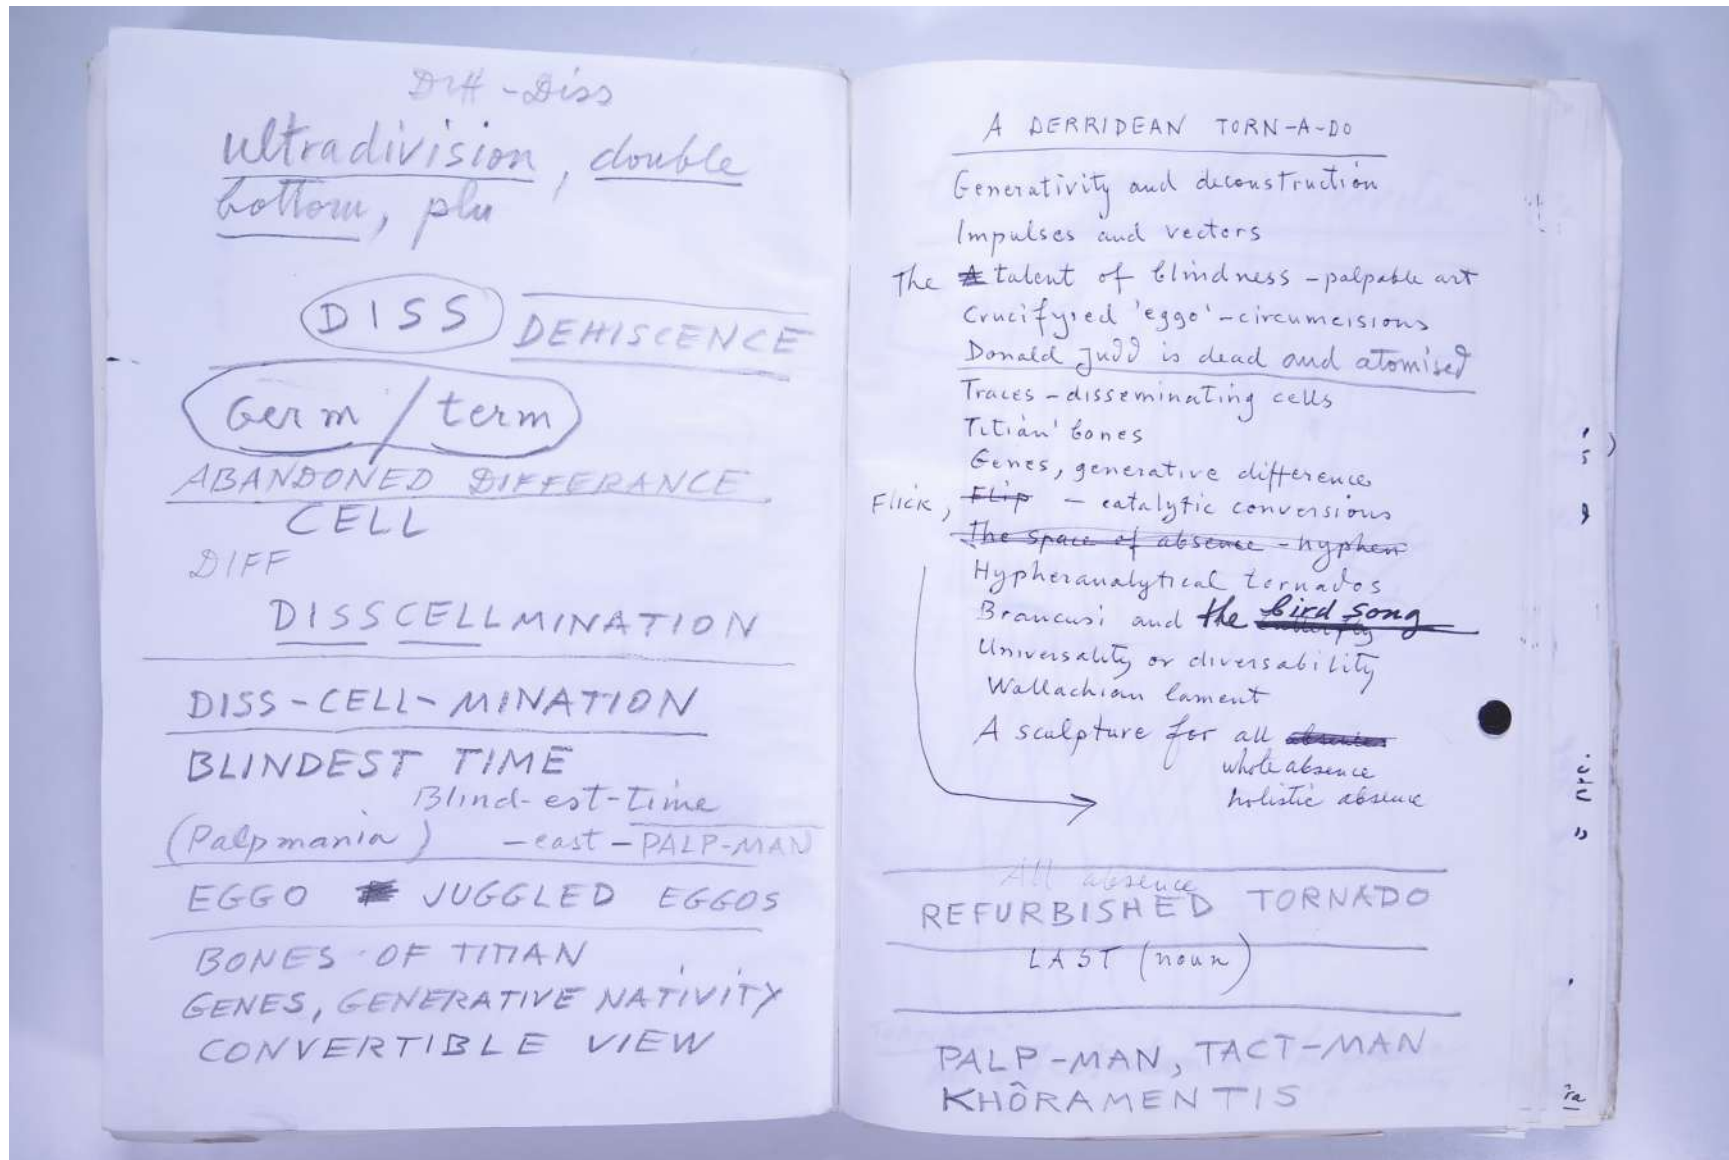 Diff - Diss
ultradivision, double
bottom, plu
DISS DEHISCENCE
Germ / term
ABANDONED DIFFERANCE
CELL
DIFF
DISSCELLMINATION
DISS-CELL-MINATION
BLINDEST TIME
Blind-est-time
(Palpmania) - east - PALP-MAN
EGGO JUGGLED EGGOS
BONES OF TITIAN
GENES, GENERATIVE NATIVITY
CONVERTIBLE VIEW
A DERRIDEAN TORN-A-DO
Generativity and deconstruction
Impulses and vectors
The talent of blindness - palpable art
Crucifyied 'eggo' - circumcisions
Donald Judd is dead and atomised
Traces - disseminating cells
Titian' bones
Genes, generative difference
Flick, Flip - catalytic conversions
The space of absence - hyphen
Hypheranalytical tornados
Brancusi and the bird song
Universality or diversability
Wallachian lament
A sculpture for all
whole absence
holistic absence
All absence
REFURBISHED TORNADO
LAST (noun)
PALP-MAN, TACT-MAN
KHÔRAMENTIS